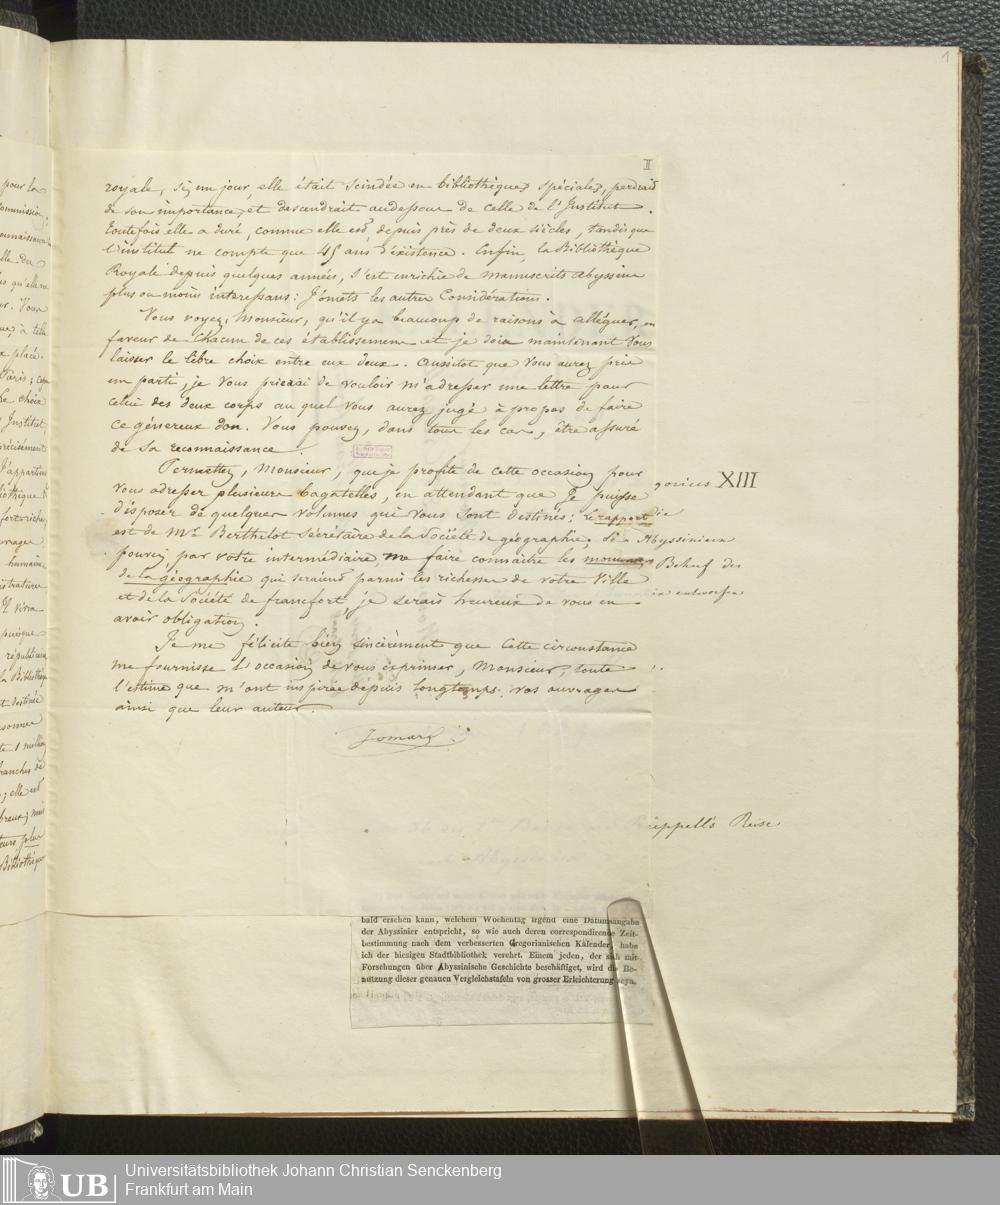 1
II
royale, si, un jour, elle était scindée en bibliothèques spéciales, perdrait
de son importance, et descendrait audessous de celle de l'Institut.
Toutefois elle a duré, comme elle est depuis près de deux siècles, tandis que
l'institut ne compte que 45 ans d'éxistence. Enfin, la Bibliothèque
Royale depuis quelques années, s'est enrichie de manuscrits abyssins
plus ou moins interessans: J'omets les autres Considérations.
Vous voyez, Monsieur, qu'il y a beaucoup de raisons à alléguer, en
faveur de Chacun de ces établissemens et je dois maintenant Vous
laisser le libre choix entre eux deux. Aussitot que Vous aurez pris
un parti, je Vous prierai de vouloir m'adresser une lettre pour
celui des deux corps au quel Vous aurez jugé à propos de faire
ce généreux don. Vous pouvez, dans tous les cas, être assuré
de sa reconnaissance.
Permettez, Monsieur, que je profite de cette occasion pour
Vous adresser plusieurs bagatelles, en attendant que je puisse
disposer de quelques volumes qui vous sont destinés; le rapport
est de Mr. Berthelot Sécrétaire de la Société de géographie;
pouvez par votre intermédiaire, me faire connaitre les
de la géographie qui seraient parmi les richesses de votre Ville
et de la Société de francfort, je serais heureux de vous en
avoir obligation.
Je me félicite bien sincèrement que cette circonstance
me fournisse l'occasion de vous exprimer, Monsieur, toute
l'estime que m'ont inspirée depuis longtemps vos ouvrages
ainsi que leur auteur.
Jomard
gorius XIII
die
Abyssiniern
Behuf des
entworfen
üppell's Reise
bald ersehen kann, welchem Wochentag irgend eine Datumsangabe
der Abyssinier entspricht, so wie auch deren correspondirende Zeit-
bestimmung nach dem verbesserten Gregorianischen Kalender, habe
ich der hiesigen Stadtbibliothek verehrt. Einem jeden, der sich mit
Forschungen über Abyssinische Geschichte beschäftiget, wird die Be-
nutzung dieser genauen Vergleichstafeln von grosser Erleichterung seyn.
UB
Universitätsbibliothek Johann Christian Senckenberg
Frankfurt am Main